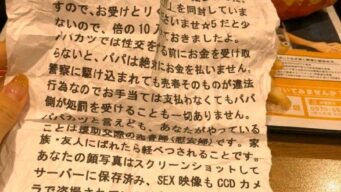 すので、お受けとり
を同封していま
ないので、倍の10
さいませ☆5だと少
おきましたよ。
パパカツでは性交をする前にお金を受け取
らないと、パパは絶対にお金を払いません。
警察に駆け込まれても売春そのものが違法
行為なのでお手当ては支払わなくてもパパ
側が処罰を受けることも一切ありません。
パパカツと言えども、あなたがやっている
ことは援助交際の
家
族・友人にばれたら軽べつされることです。
あなたの顔写真はスクリーンショットして
サーバーに保存済み、SEX映像もCCDカメ
ラで盗撮されて
いてみませんか